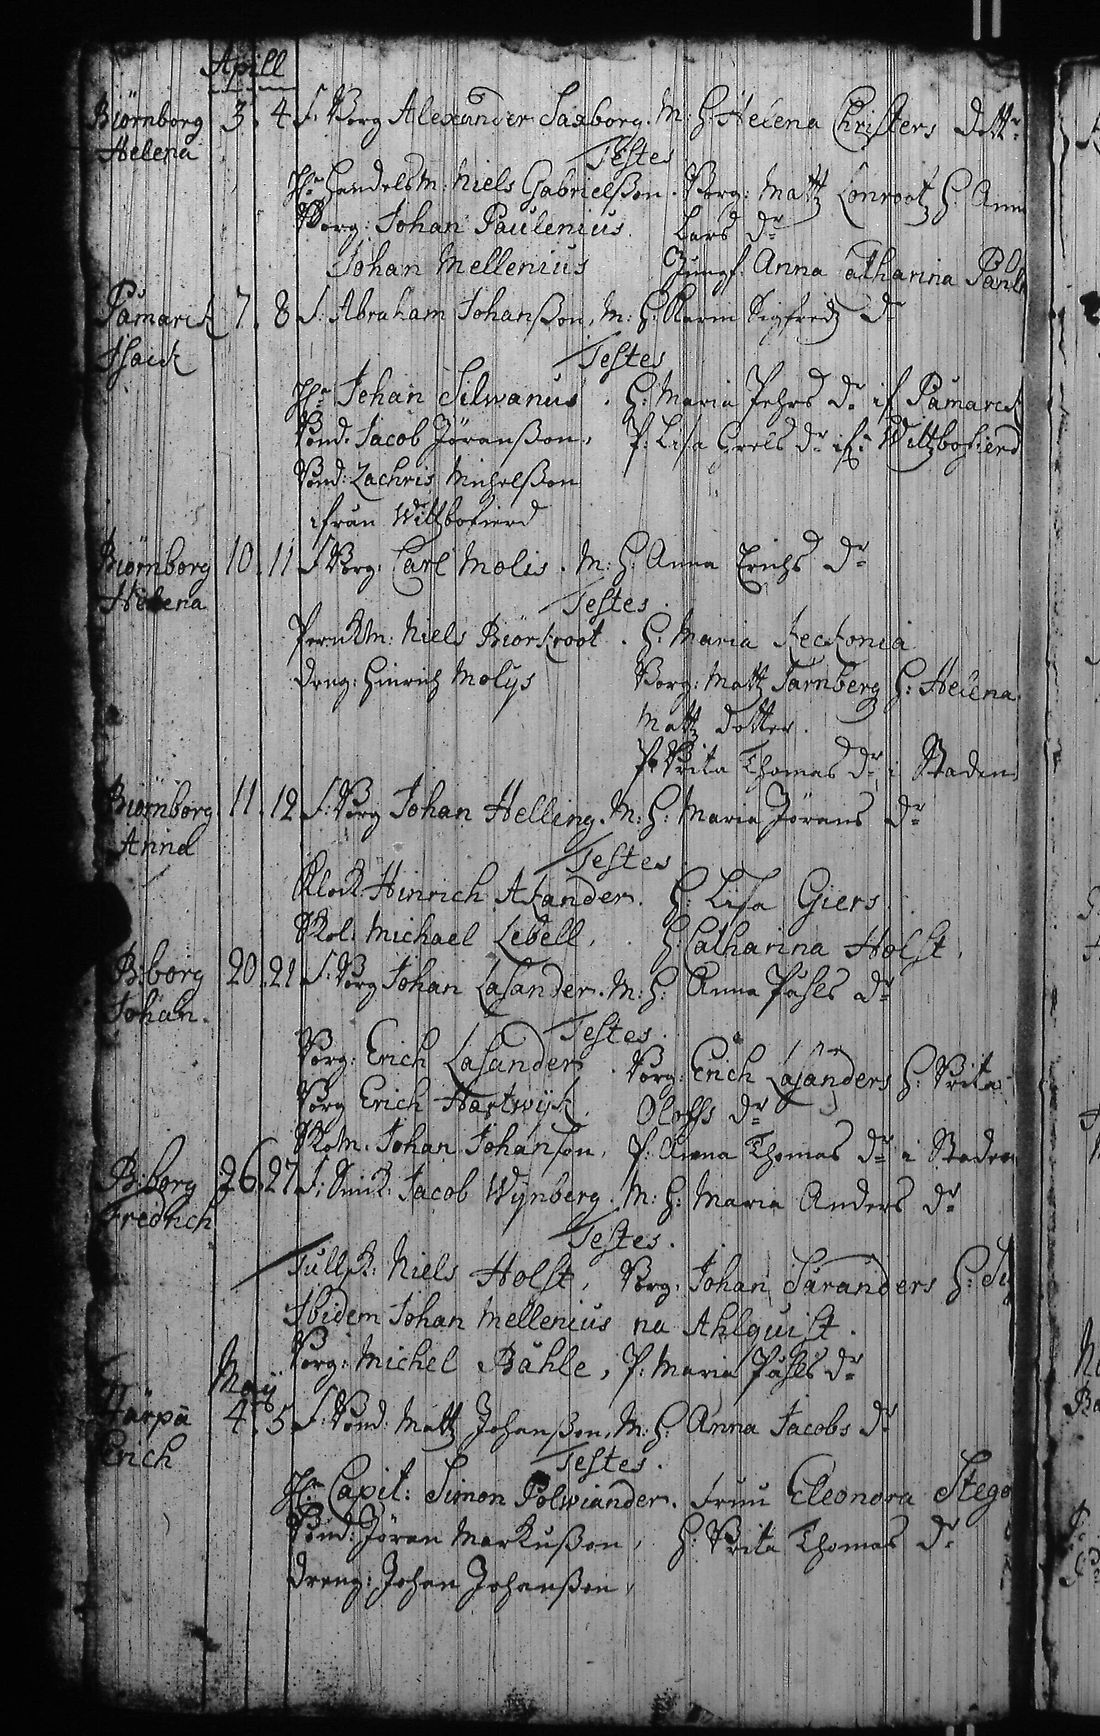 Apill
Biörnborg 3. 4 F. Borg Alexander Saxborg. M: H: Helena Christers dottr
Helena
Testes
Hr Handelsm: Niels Gabrielsson. Borg: Matz Lönroot H. Anna
Borg: Johan Paulenius Lars dr
Johan Mellenius Jungf: Anna Catharina
Påmarck 7. 8 F. Abraham Johansson. M: H: Karin Sigfredz dr
Isaick
Testes
Hr Johan Silwanus. H: Maria Pehrs dr if Påmarck
Bond. Jacob Jöransson. P: Lisa Grels dr if: Wittbofierd
Bond: Zachris Michelsson
ifrån Wittbofierd
Biörnborg 10. 11 F. Borg: Carl Molis. M: H: Anna Erichs dr
Helena
Testes.
Niels Biörkroot. H: Maria Teckonia
Dreng: Hinrich Molijs Borg: Matz Tarnberg H: Helena
Matz dotter.
P: Brita Thomas dr i Staden
Biörnborg. 11. 12 F. Borg Johan Helling. M: H: Maria Jörans dr
Anna
Testes
Klock Hinrich Akander. H: Lisa Giers
Skol: Michael Lebell. H: Catharina Holst.
B:borg 20. 21 F. Borg Johan Lasander. M: H: Anna Påhls dr
Johan.
Testes.
Borg: Erich Lasander. Borg: Erich Lasanders H: Brita
Borg Erich Hartwijk. Oloffs dr
Skom. Johan Johansson. P: Anna Thomas dr i Staden
B:borg 26. 27 F: Smed: Jacob Wijnberg. M: H: Maria Anders dr
Fredrich
Testes.
Tullsk: Niels Holst. Borg: Johan Saranders H:
Ibidem Johan Mellenius na Ahlquist.
Borg: Michel Båhle. P: Maria Påhls dr
Maij
Härpå 4. 5 F. Bond: Matz Johansson. M: H: Anna Jacobs dr
Erich
Testes.
Hr Capit: Simon Polwiander. Fruu Eleonora
Bond: Jöran Markusson. H: Brita Thomas dr
Dreng: Johan Johansson.